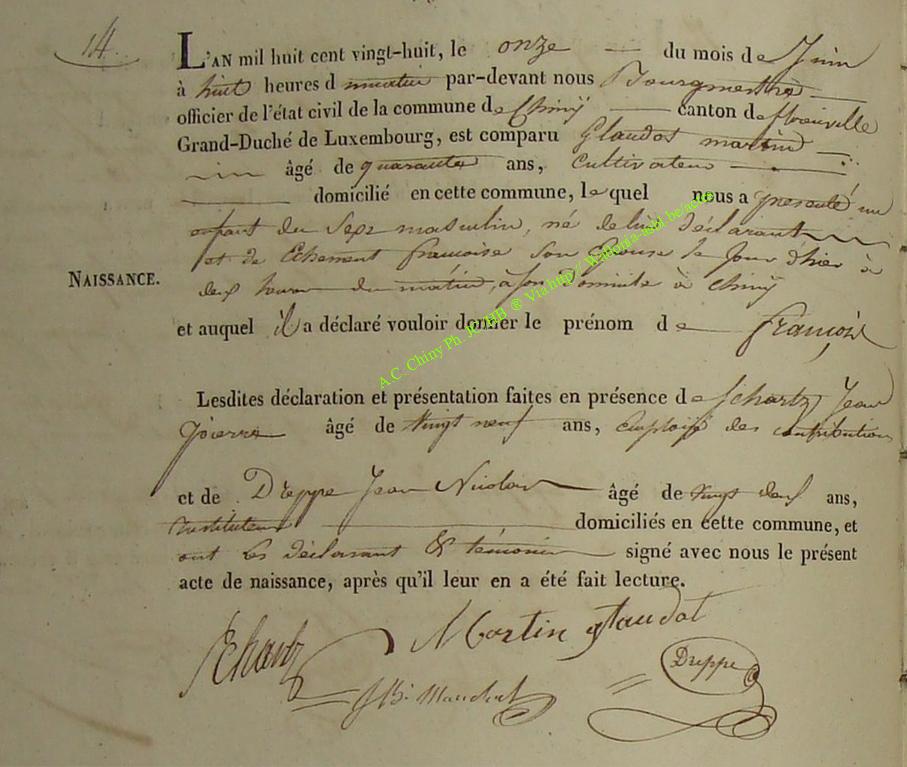 14.
L'AN mil huit cent vingt-huit, le onze du mois de Juin
à huit heures d matin par-devant nous Bourgmestre
officier de l'état civil de la commune de Chiny canton de florenville
Grand-Duché de Luxembourg, est comparu Glaudot martin
âgé de quarante ans, Cultivateur
domicilié en cette commune, le quel nous a presenté un
enfant du Sexe masculin, né de lui déclarant
et de Echement francoise son Epouse le Jour d'hier à
deux heures du matin, a son Domicile à Chiny
NAISSANCE.
et auquel il a déclaré vouloir donner le prénom de françois
Lesdites déclaration et présentation faites en présence de Schartz Jean
pierre âgé de vingt neuf ans, Employé des contributions
et de Dreppe Jean Nicolas âgé de vingt deux ans,
instituteur domiciliés en cette commune, et
ont les déclarant & témoins signé avec nous le présent
acte de naissance, après qu'il leur en a été fait lecture.
Schartz Martin glaudot
Dreppe
A.C. Chiny Ph. ® Via http://